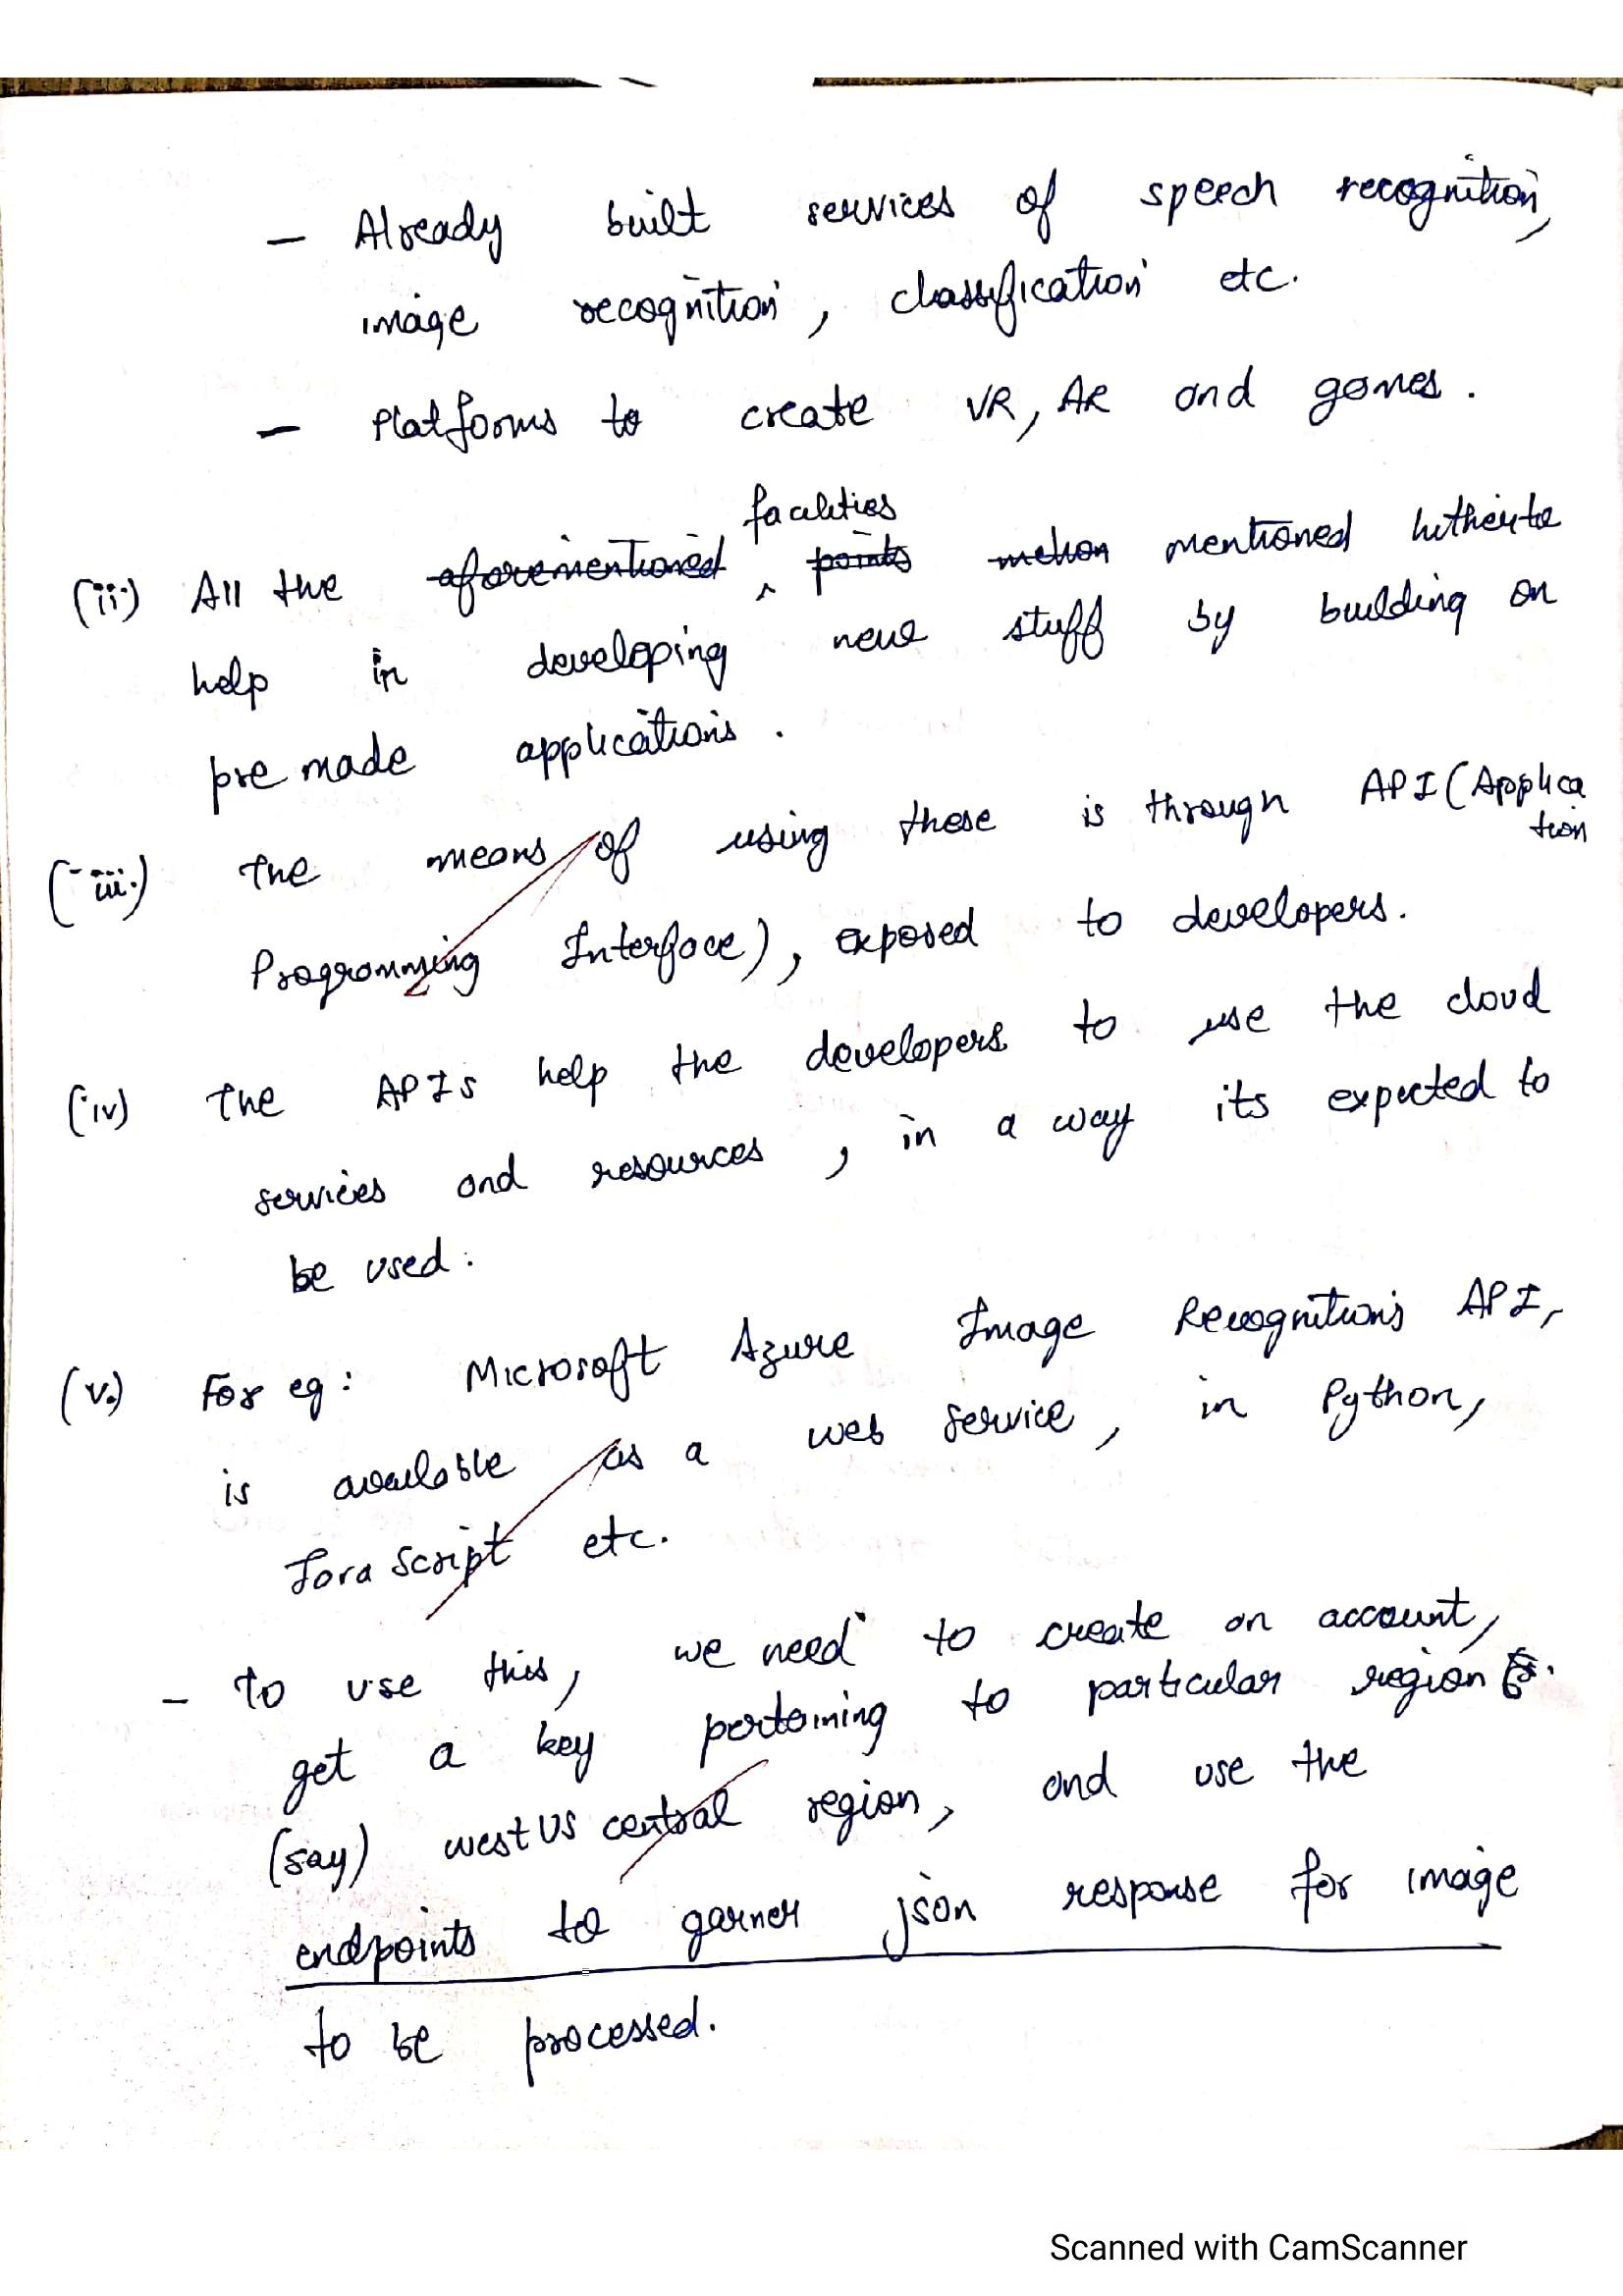 — Already built services of speech recognition,
image recognition, classification etc.
— Platforms to create VR, AR and games.
facilities
(ii) All the aforementioned ^ points mention mentioned hitherto
help in developing new stuff by building on
pre made applications.
(iii.) The means of using these is through API (Applica
tion
Programming Interface), exposed to developers.
(iv) The APIs help the developers to use the cloud
services and resources, in a way its expected to
be used.
(v.) For eg: Microsoft Azure Image Recognition's API,
is available as a web service, in Python,
Java Script etc.
— To use this, we need to create an account,
get a key pertaining to particular region
(say) west US central region, and use the
endpoints to garner json response for image
to be processed.
Scanned with CamScanner